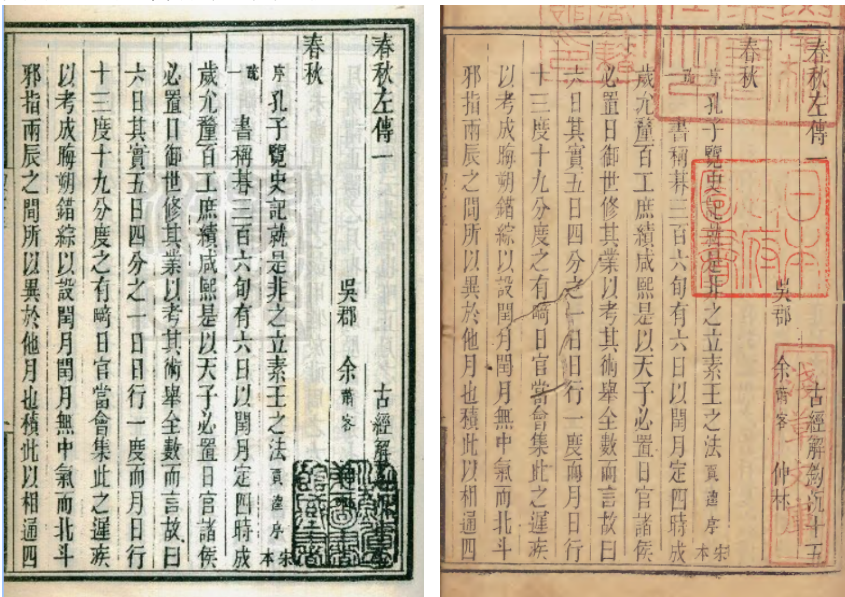 春秋左傳一 古經解
吳郡 余蕭客
春秋
序 孔子覽史記就是非之立素王之法 賈逵序 宋本
疏一 書稱朞三百六旬有六日以閏月定四時成
歲允釐百工庶績咸熙是以天子必置日官諸侯
必置日御世修其業以考其術舉全數而言故曰
六日其實五日四分之一日日行一度而月日行
十三度十九分度之有畸日官當會集此之遲疾
以考成晦朔錯綜以設閏月閏月無中氣而北斗
邪指兩辰之間所以異於他月也積此以相通四
春秋左傳一 古經解鉤沉十五
吳郡 余蕭客 仲林
春秋
序 孔子覽史記就是非之立素王之法 賈逵序 宋本
疏一 書稱朞三百六旬有六日以閏月定四時成
歲允釐百工庶績咸熙是以天子必置日官諸侯
必置日御世修其業以考其術舉全數而言故曰
六日其實五日四分之一日日行一度而月日行
十三度十九分度之有畸日官當會集此之遲疾
以考成晦朔錯綜以設閏月閏月無中氣而北斗
邪指兩辰之間所以異於他月也積此以相通四
日本政府圖書
淺草文庫